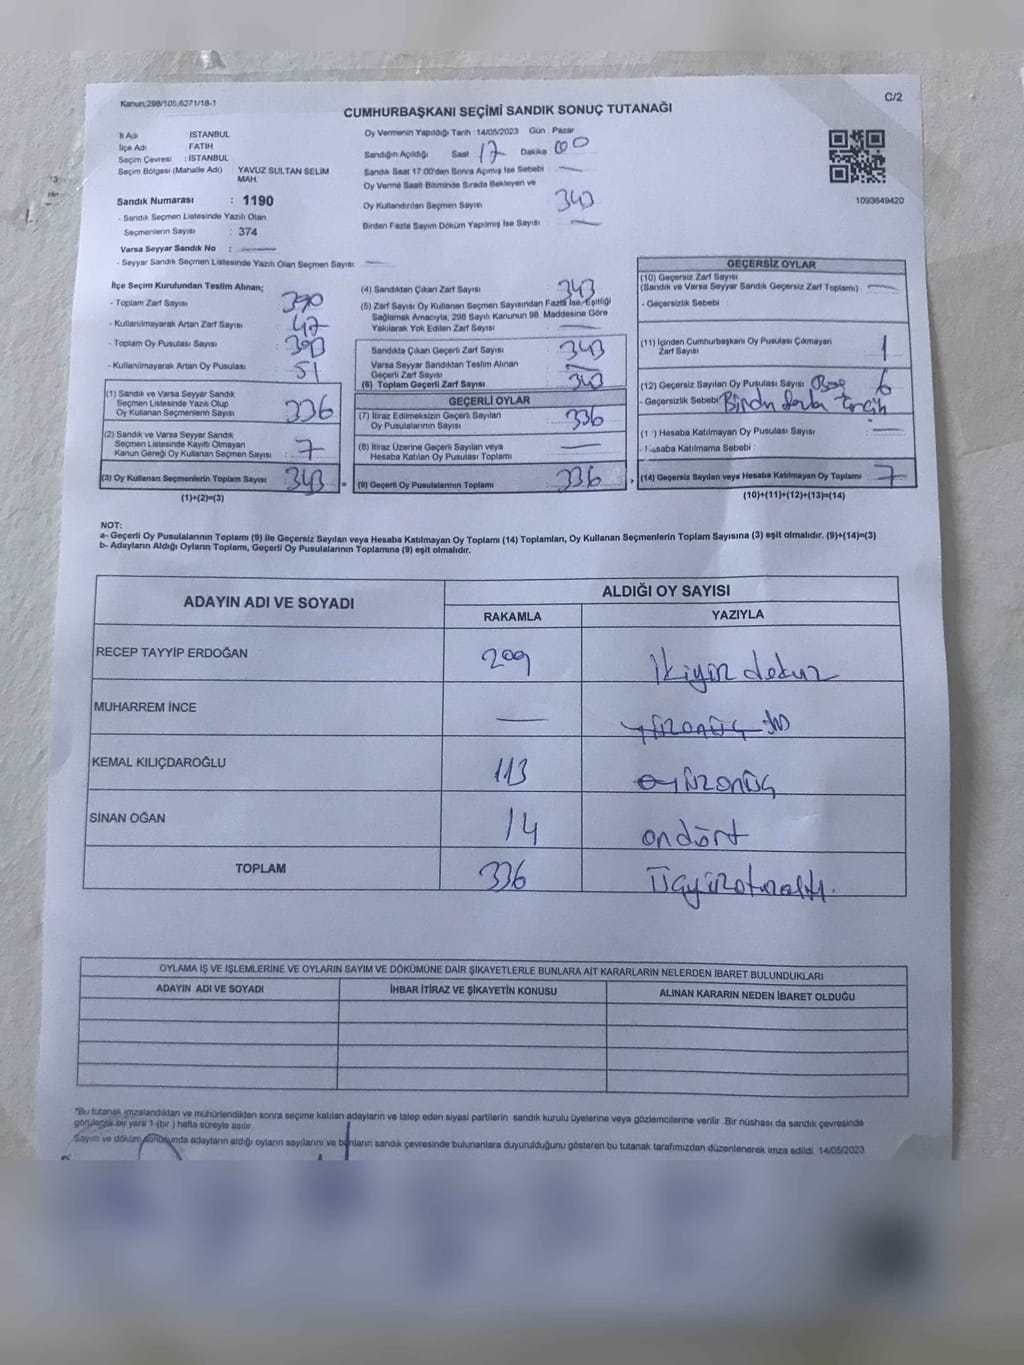 Kanun;298/105,6271/18-1
C/2
CUMHURBAŞKANI SEÇİMİ SANDIK SONUÇ TUTANAĞI
İl Adı : İSTANBUL
İlçe Adı : FATİH
Seçim Çevresi : İSTANBUL
Seçim Bölgesi (Mahalle Adı) YAVUZ SULTAN SELİM
MAH.
Sandık Numarası : 1190
- Sandık Seçmen Listesinde Yazılı Olan
Seçmenlerin Sayısı : 374
Varsa Seyyar Sandık No :
- Seyyar Sandık Seçmen Listesinde Yazılı Olan Seçmen Sayısı
Oy Vermenin Yapıldığı Tarih : 14/05/2023 Gün : Pazar
Sandığın Açıldığı Saat 17 Dakika 00
Sandık Saat 17.00'den Sonra Açımış İse Sebebi
Oy Verme Saati Bitiminde Sırada Bekleyen ve
Oy Kullandırılan Seçmen Sayısı 343
Birden Fazla Sayım Döküm Yapılmış İse Sayısı
1093649420
İlçe Seçim Kurulundan Teslim Alınan;
- Toplam Zarf Sayısı 390
- Kullanılmayarak Artan Zarf Sayısı 47
- Toplam Oy Pusulası Sayısı 390
- Kullanılmayarak Artan Oy Pusulası 51
(1) Sandık ve Varsa Seyyar Sandık
Seçmen Listesinde Yazılı Olup
Oy Kullanan Seçmenlerin Sayısı 336
(2) Sandık ve Varsa Seyyar Sandık
Seçmen Listesinde Kayıtlı Olmayan
Kanun Gereği Oy Kullanan Seçmen Sayısı 7
(3) Oy Kullanan Seçmenlerin Toplam Sayısı 343
(1)+(2)=(3)
(4) Sandıktan Çıkan Zarf Sayısı 343
(5) Zarf Sayısı Oy Kullanan Seçmen Sayısından Fazla İse, Eşitliği
Sağlamak Amacıyla, 298 Sayılı Kanunun 98. Maddesine Göre
Yakılarak Yok Edilen Zarf Sayısı
Sandıkta Çıkan Geçerli Zarf Sayısı 343
Varsa Seyyar Sandıktan Teslim Alınan
Geçerli Zarf Sayısı
(6) Toplam Geçerli Zarf Sayısı 343
GEÇERLİ OYLAR
(7) İtiraz Edilmeksizin Geçerli Sayılan
Oy Pusulalarının Sayısı 336
(8) İtiraz Üzerine Geçerli Sayılan veya
Hesaba Katılan Oy Pusulası Toplamı
(9) Geçerli Oy Pusulalarının Toplamı 336
GEÇERSİZ OYLAR
(10) Geçersiz Zarf Sayısı
(Sandık ve Varsa Seyyar Sandık Geçersiz Zarf Toplamı)
- Geçersizlik Sebebi
(11) İçinden Cumhurbaşkanı Oy Pusulası Çıkmayan
Zarf Sayısı 1
(12) Geçersiz Sayılan Oy Pusulası Sayısı 6
- Geçersizlik Sebebi Birden fazla tercih
(1 ) Hesaba Katılmayan Oy Pusulası Sayısı
- Hesaba Katılmama Sebebi
(14) Geçersiz Sayılan veya Hesaba Katılmayan Oy Toplamı 7
(10)+(11)+(12)+(13)=(14)
NOT:
a- Geçerli Oy Pusulalarının Toplamı (9) ile Geçersiz Sayılan veya Hesaba Katılmayan Oy Toplamı (14) Toplamları, Oy Kullanan Seçmenlerin Toplam Sayısına (3) eşit olmalıdır. (9)+(14)=(3)
b- Adayların Aldığı Oyların Toplamı, Geçerli Oy Pusulalarının Toplamına (9) eşit olmalıdır.
ADAYIN ADI VE SOYADI
ALDIĞI OY SAYISI
RAKAMLA YAZIYLA
RECEP TAYYİP ERDOĞAN 209 ikiyüz dokuz
MUHARREM İNCE — yüzonüç
KEMAL KILIÇDAROĞLU 113 yüzonüç
SİNAN OĞAN 14 ondört
TOPLAM 336 üçyüzotuzaltı.
OYLAMA İŞ VE İŞLEMLERİNE VE OYLARIN SAYIM VE DÖKÜMÜNE DAİR ŞİKAYETLERLE BUNLARA AİT KARARLARIN NELERDEN İBARET BULUNDUKLARI
ADAYIN ADI VE SOYADI İHBAR İTİRAZ VE ŞİKAYETİN KONUSU ALINAN KARARIN NEDEN İBARET OLDUĞU
"Bu tutanak imzalandıktan ve mühürlendikten sonra seçime katılan adayların ve talep eden siyasi partilerin sandık kurulu üyelerine veya gözlemcilerine verilir. Bir nüshası da sandık çevresinde
görülecek bir yere 1 (bir) hafta süreyle asılır.
Sayım ve döküm sonucunda adayların aldığı oyların sayılarını ve bunların sandık çevresinde bulunanlara duyurulduğunu gösteren bu tutanak tarafımızdan düzenlenerek imza edildi. 14/05/2023